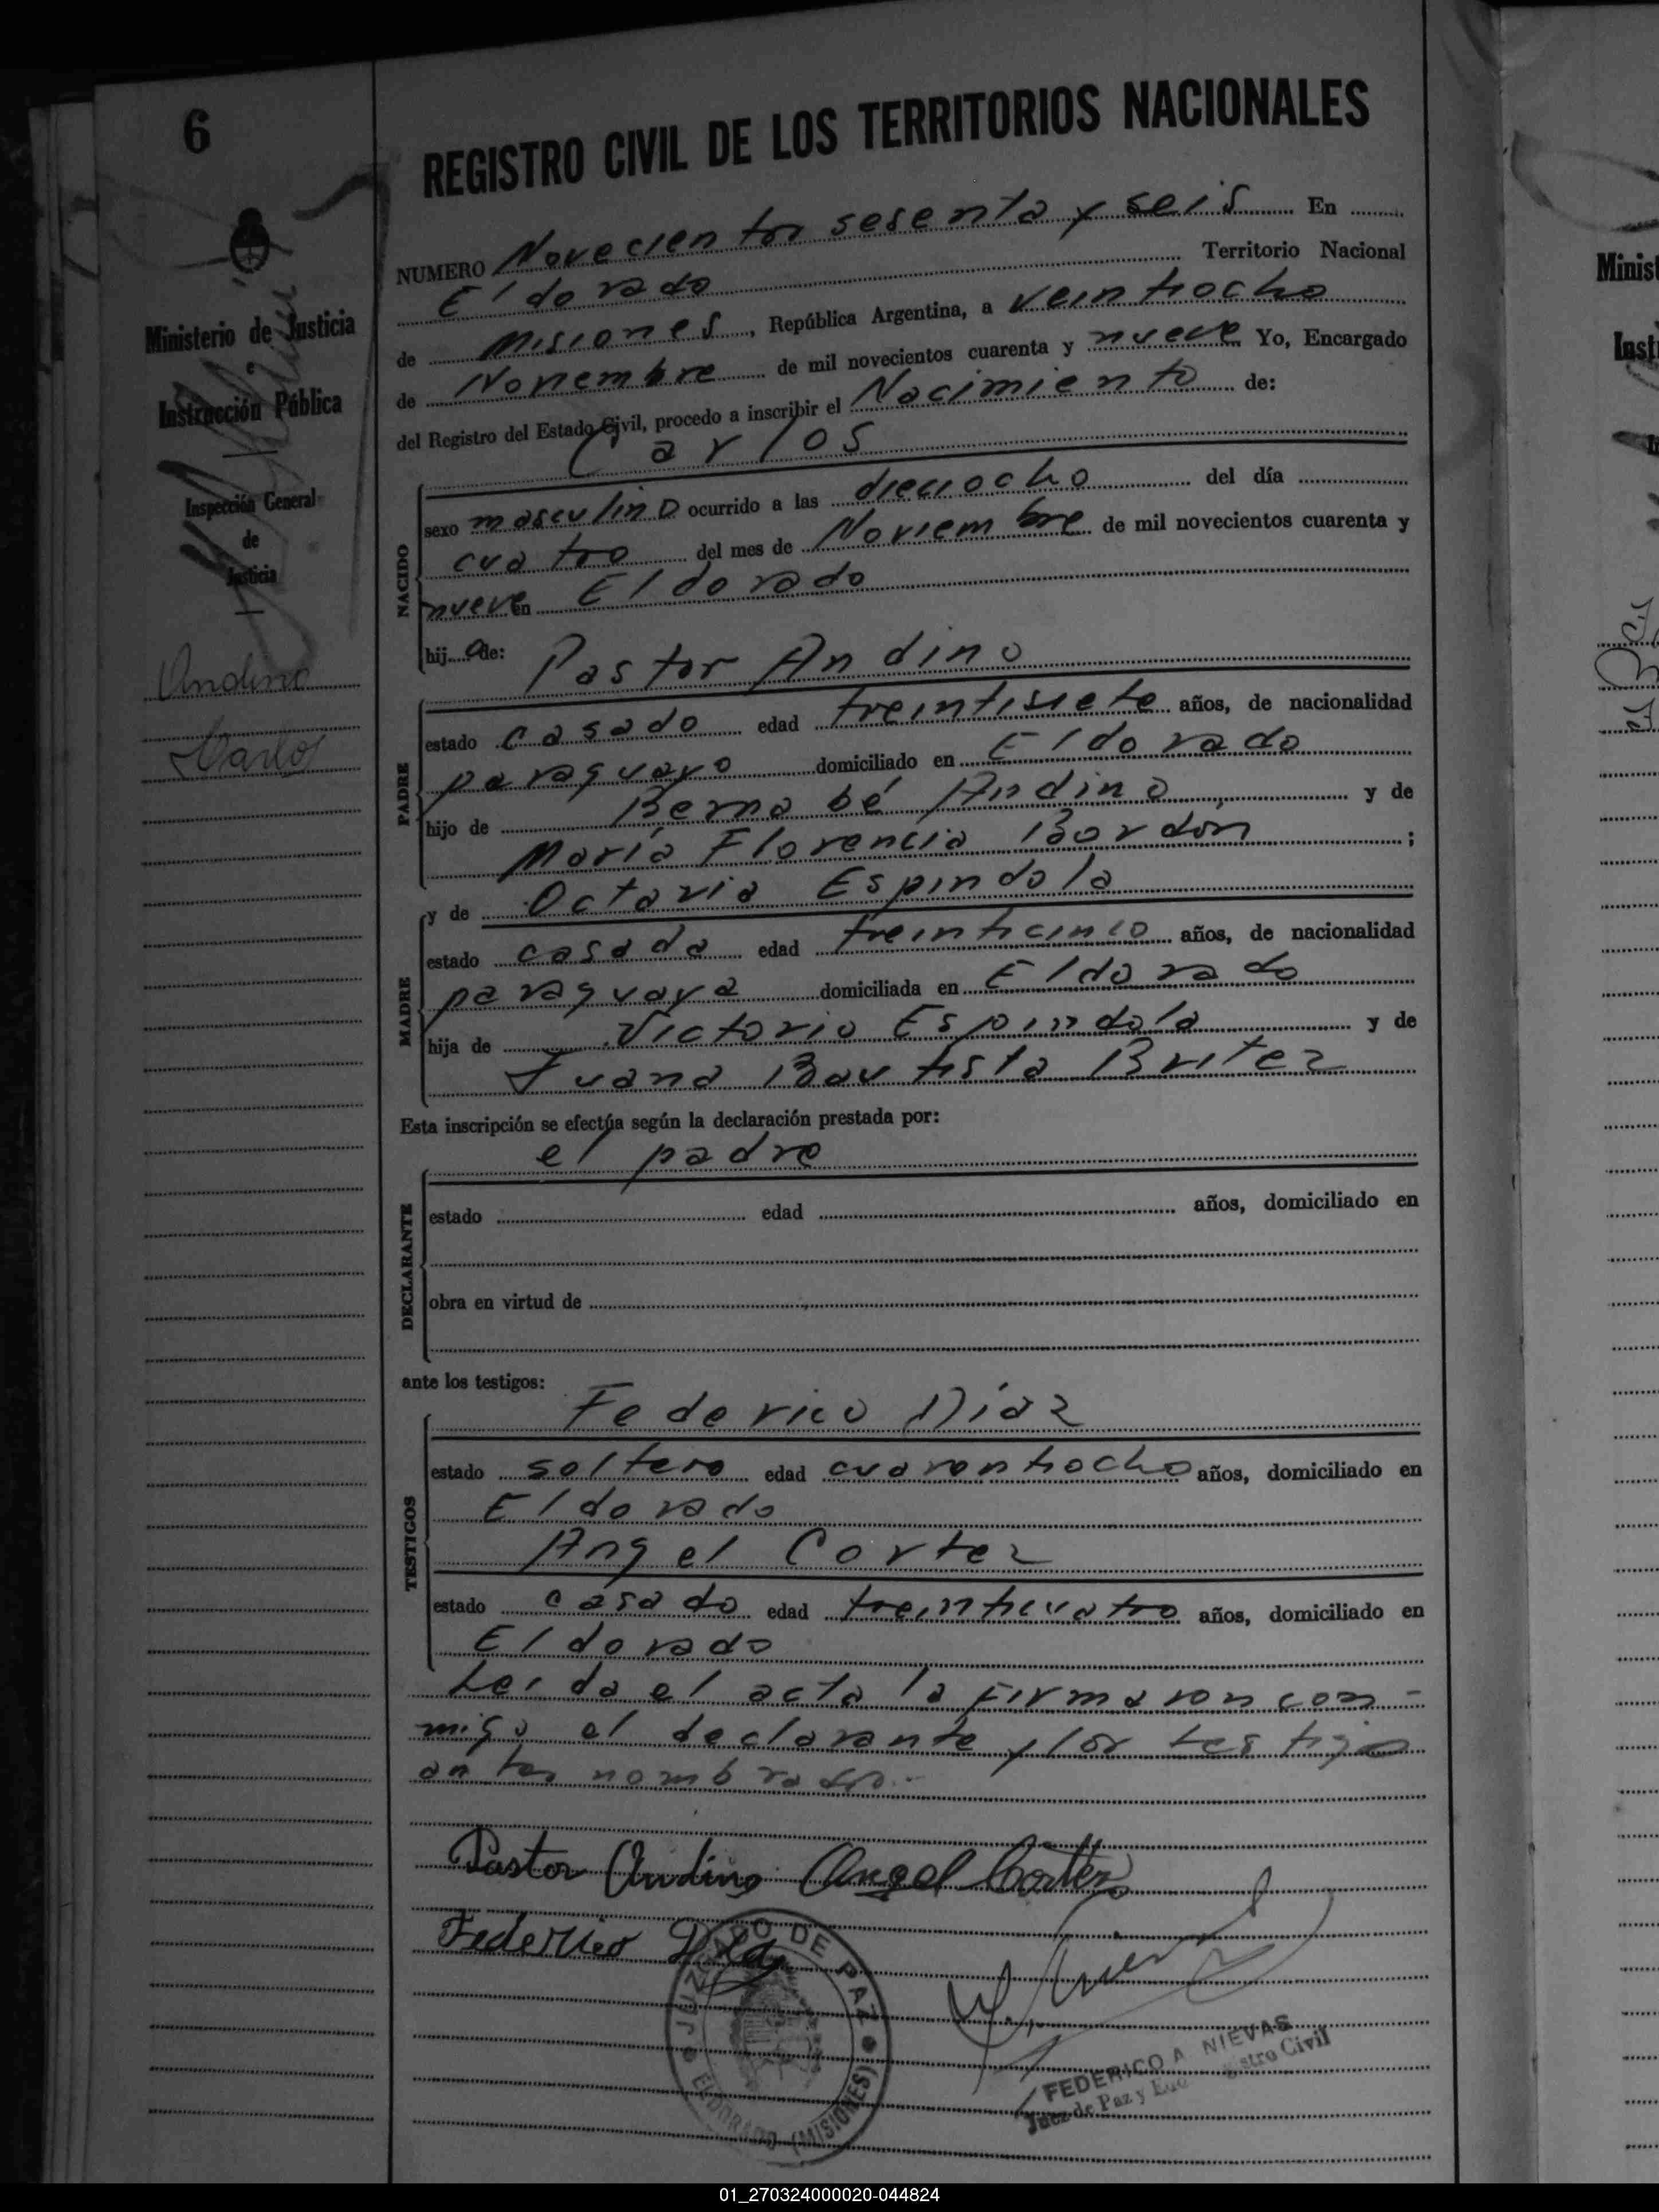 6
REGISTRO CIVIL DE LOS TERRITORIOS NACIONALES
NUMERO Novecientos sesenta y seis En
Eldorado Territorio Nacional
de Misiones, República Argentina, a veintiocho
de Noviembre de mil novecientos cuarenta y nueve Yo, Encargado
del Registro del Estado Civil, procedo a inscribir el Nacimiento de:
Carlos
NACIDO
sexo masculino ocurrido a las dieciocho del día
cuatro del mes de Noviembre de mil novecientos cuarenta y
nueve en Eldorado
hijo de: Pastor Andino
PADRE
estado casado edad treintisiete años, de nacionalidad
paraguayo domiciliado en Eldorado
hijo de Bernabé Andino, y de
María Florencia Bordon;
y de Octavia Espindola
MADRE
estado casada edad treinticinco años, de nacionalidad
paraguaya domiciliada en Eldorado
hija de Victorio Espindola y de
Juana Bautista Britez
Esta inscripción se efectúa según la declaración prestada por:
el padre
DECLARANTE
estado edad años, domiciliado en
obra en virtud de
ante los testigos:
Federico Díaz
TESTIGOS
estado soltero edad cuarentiocho años, domiciliado en
Eldorado
Angel Cortez
estado casado edad treinticuatro años, domiciliado en
Eldorado
Leida el acta la firmaron con-
migo el declarante y los testigos
antes nombrados.-
Pastor Andino Angel Cortez
Federico Díaz
JUZGADO DE PAZ
ELDORADO (MISIONES)
FEDERICO A. NIEVAS
Juez de Paz y Registro Civil
Ministerio de Justicia
e
Instrucción Pública
Inspección General
de
Justicia
Andino
Carlos
Minist
Inst
01_270324000020-044824